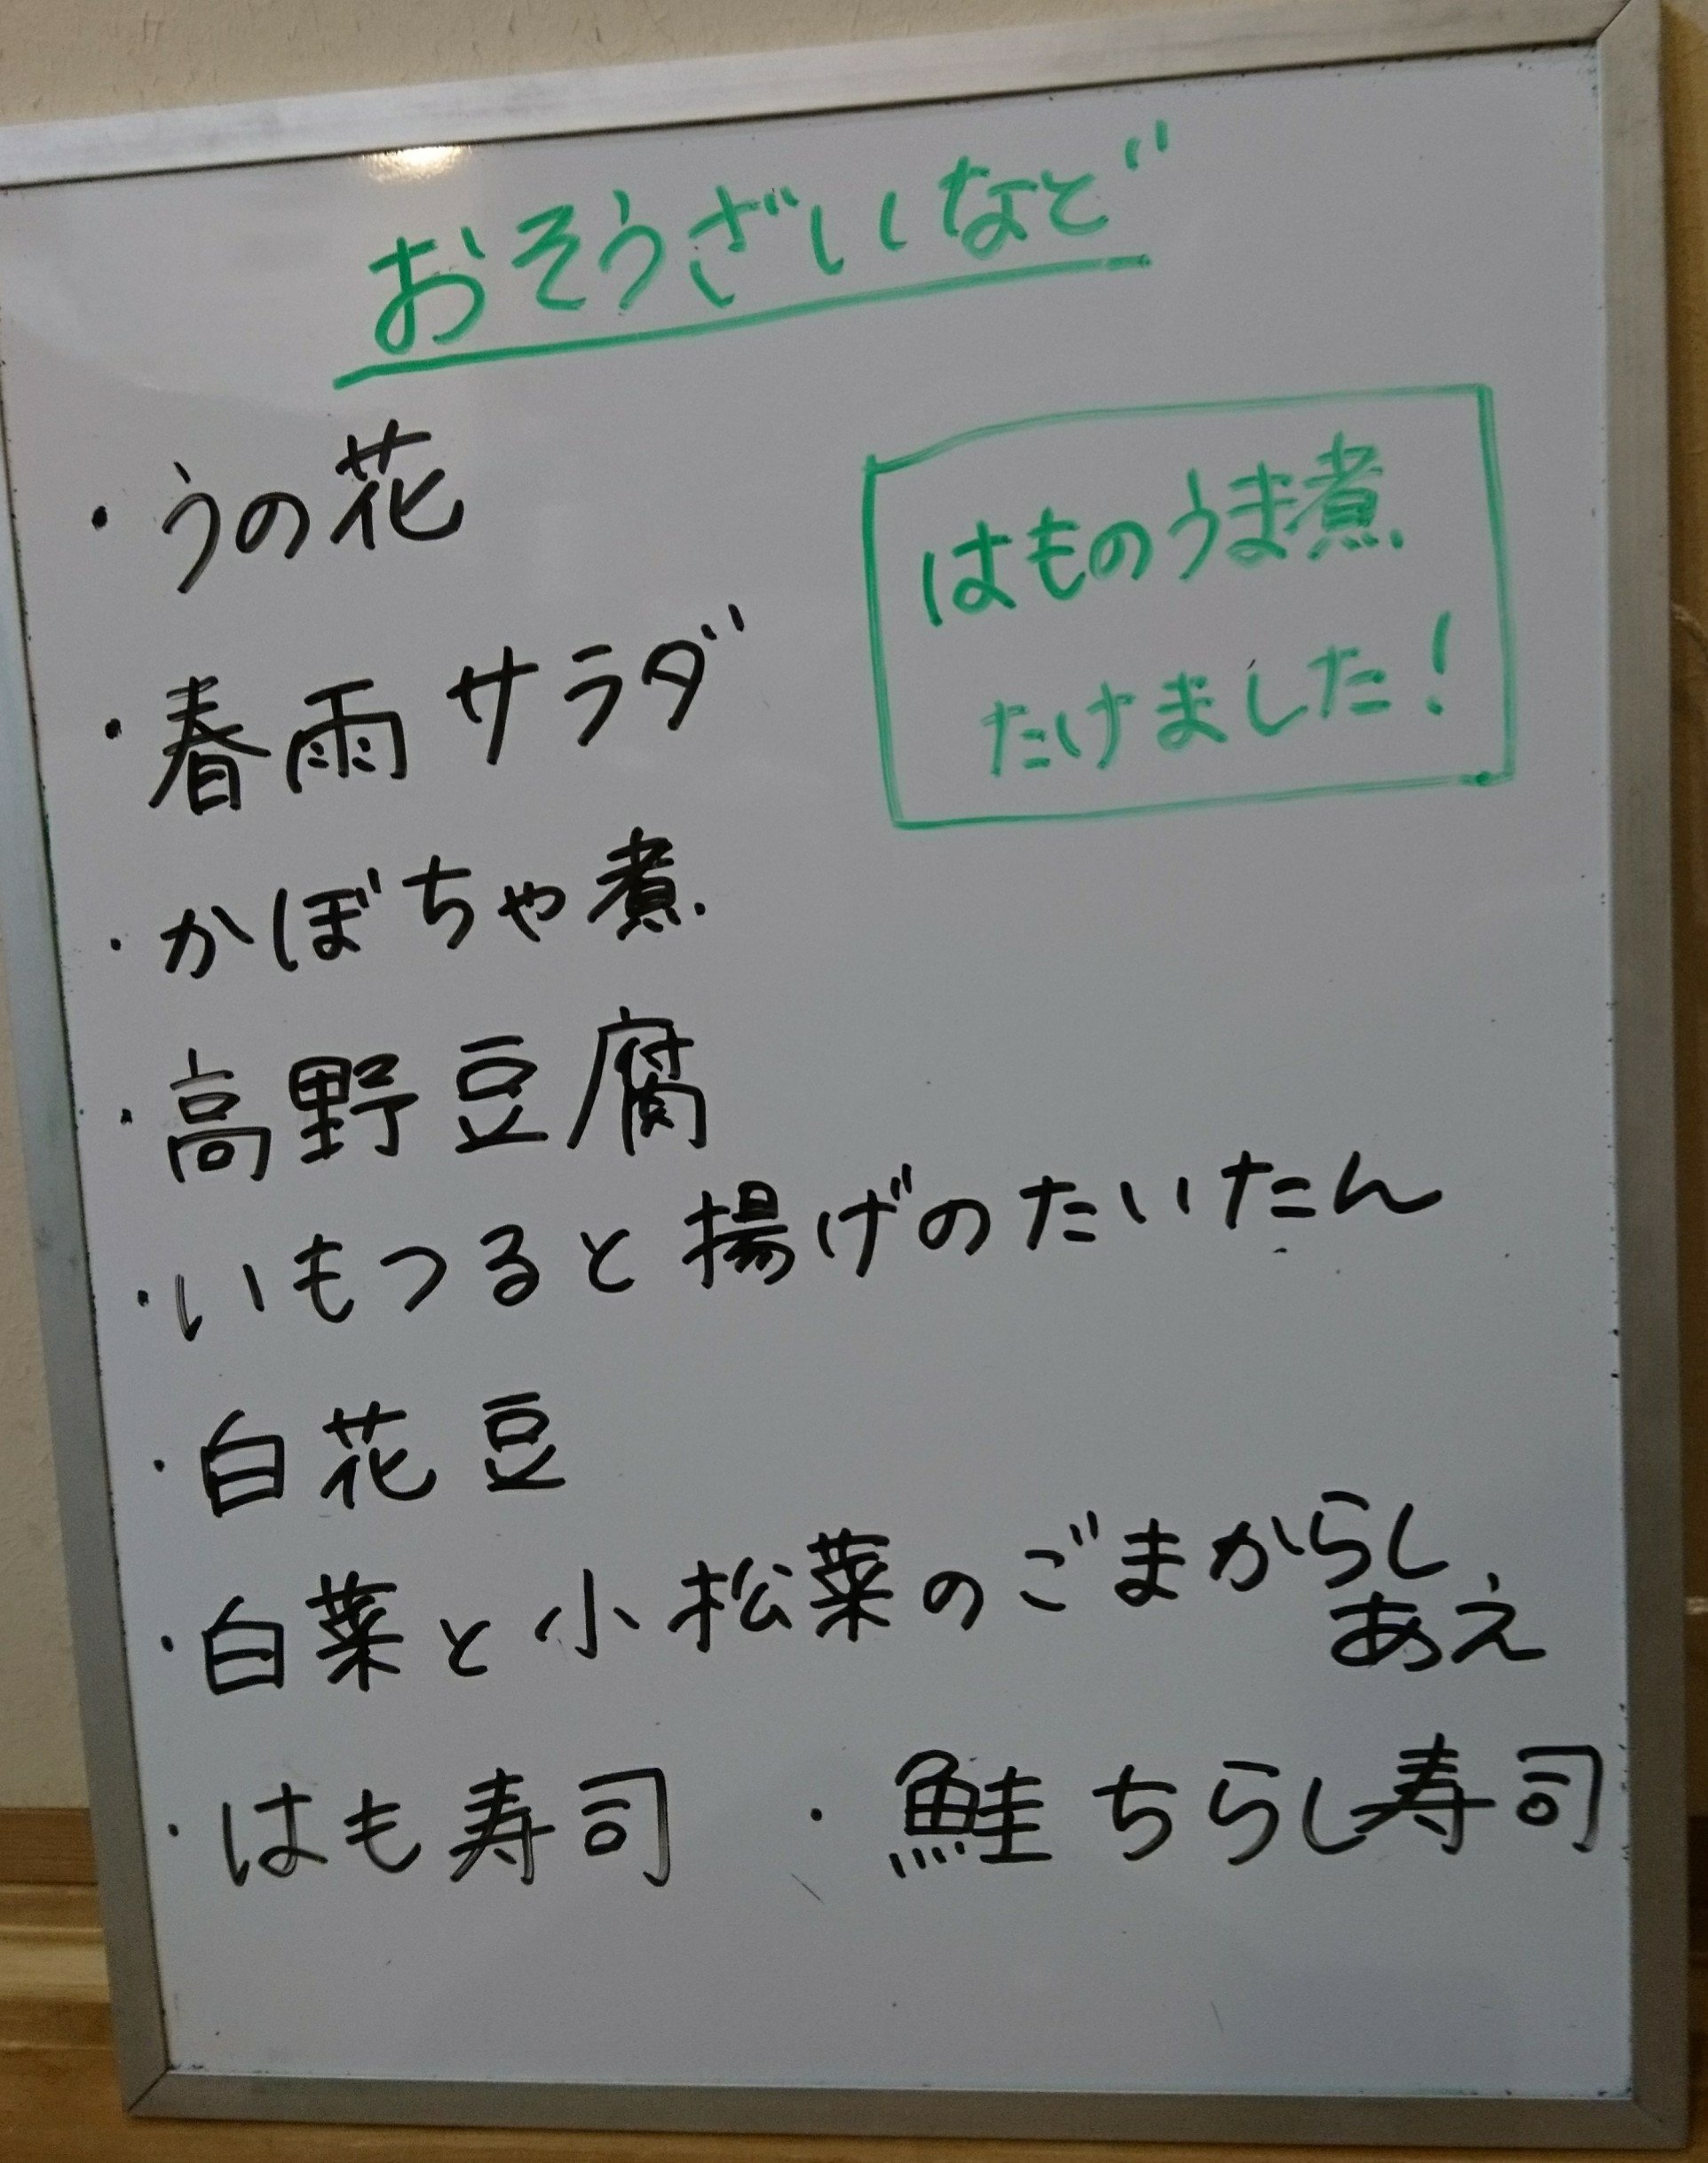 おそうざいなど
・うの花
はものうま煮
たけました!
・春雨サラダ
・かぼちゃ煮
・高野豆腐
・いもつると揚げのたいたん
・白花豆
・白菜と小松菜のごまからし
あえ
・はも寿司 ・鮭ちらし寿司